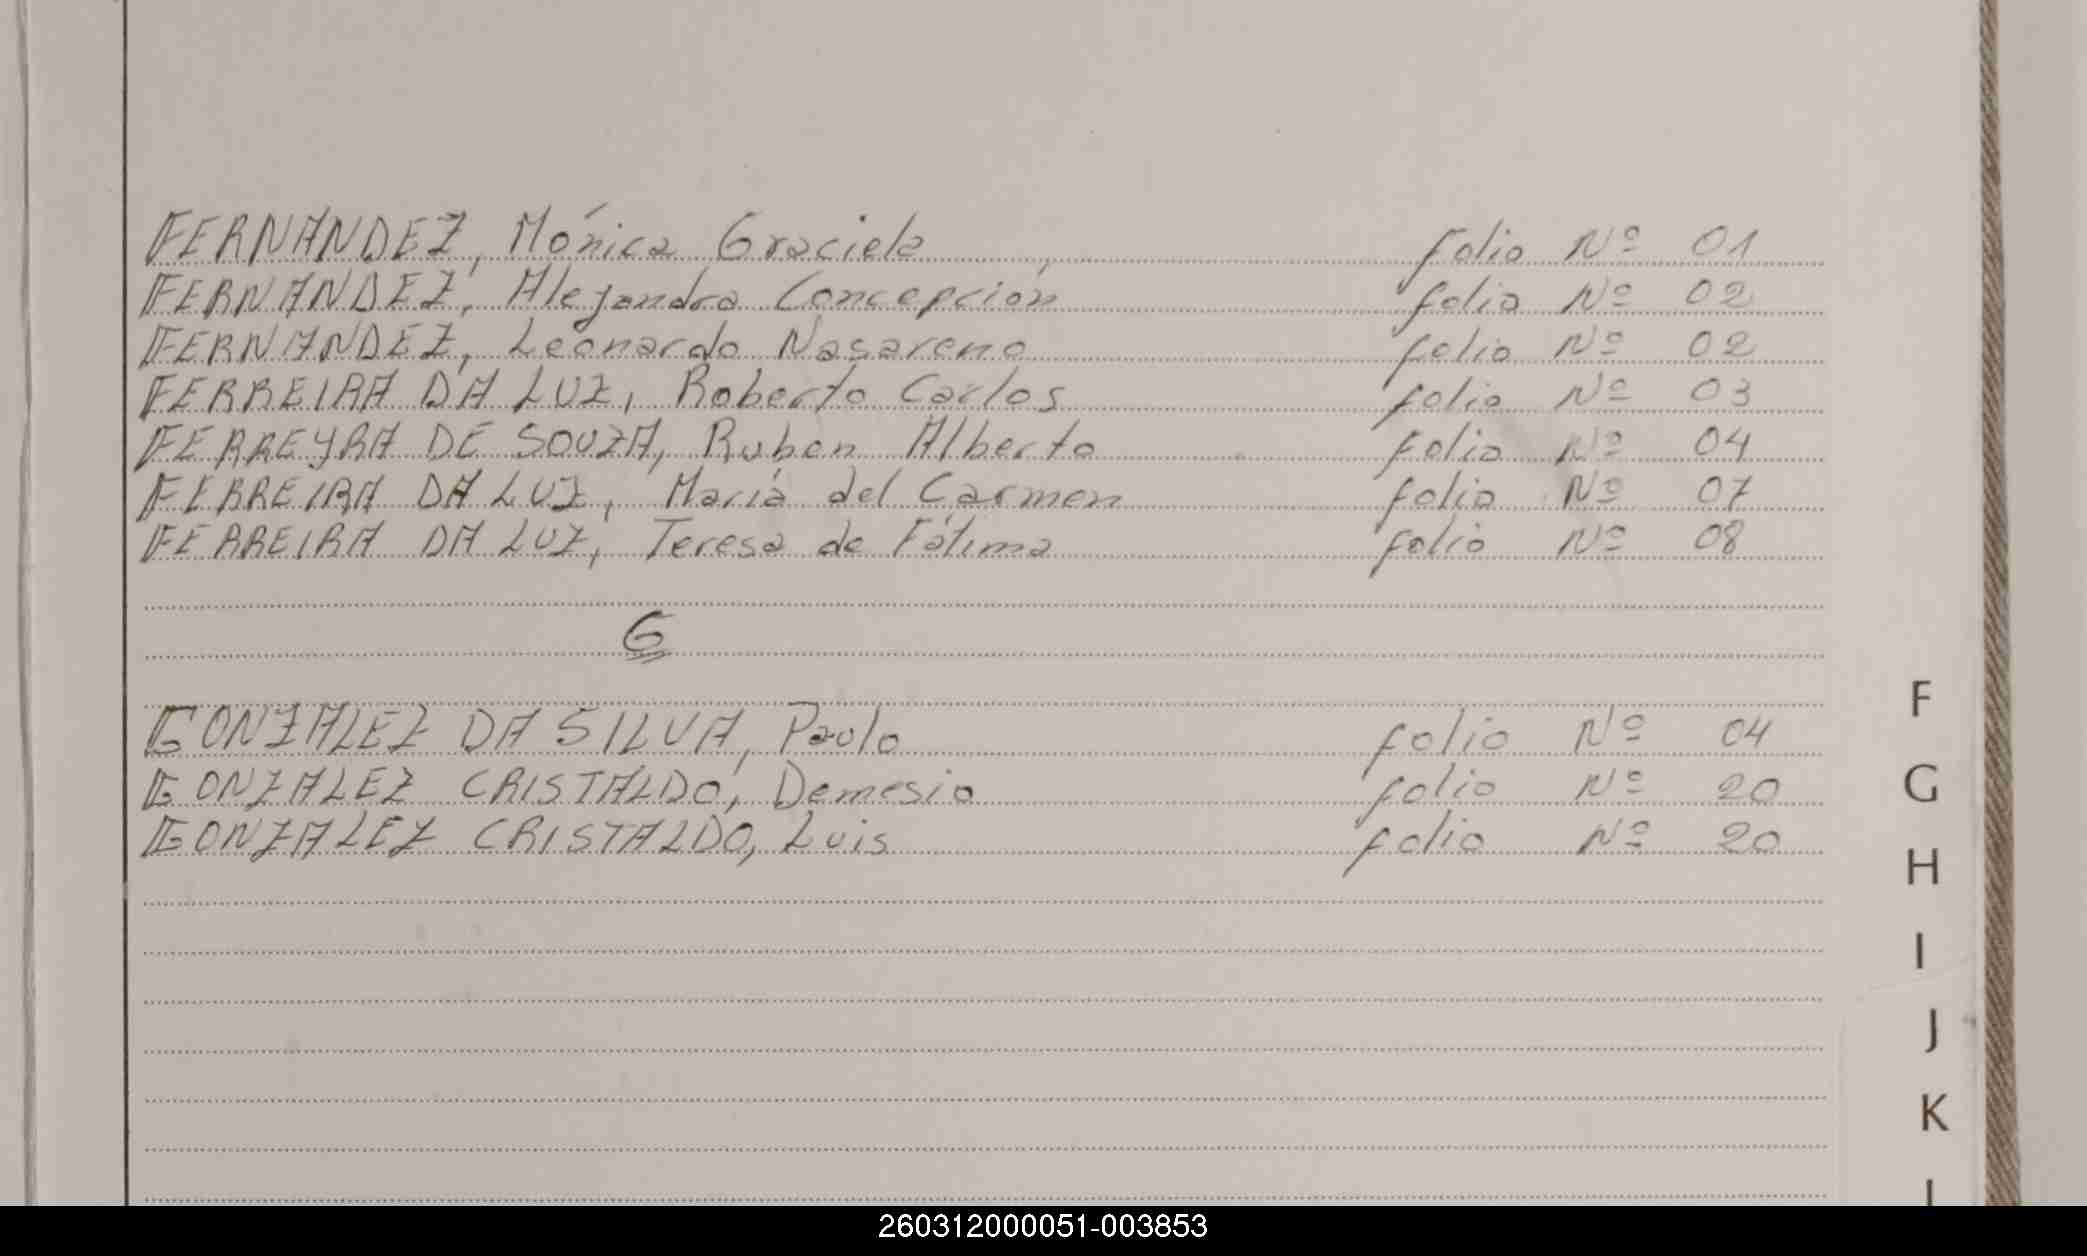 FERNANDEZ, Mónica Graciela folio Nº 01
FERNANDEZ, Alejandra Concepción folio Nº 02
FERNANDEZ, Leonardo Nasareno folio Nº 02
FERREIRA DA LUZ, Roberto Carlos folio Nº 03
FERREYRA DE SOUZA, Ruben Alberto folio Nº 04
FERREIRA DA LUZ, María del Carmen folio Nº 07
FERREIRA DA LUZ, Teresa de Fátima folio Nº 08
G
GONZALEZ DA SILVA, Paulo folio Nº 04
GONZALEZ CRISTALDO, Demesio folio Nº 20
GONZALEZ CRISTALDO, Luis folio Nº 20
F
G
H
I
J
K
260312000051-003853